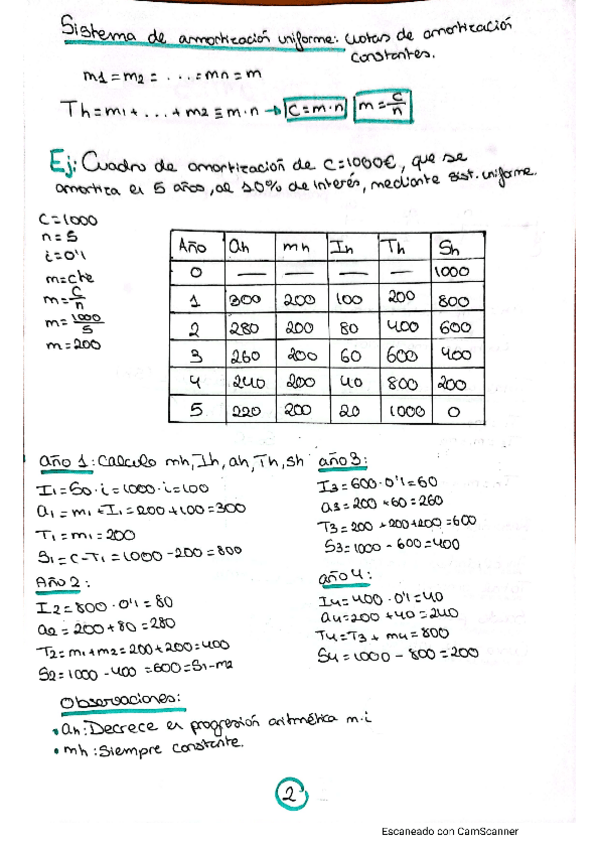 Sistema de amortización uniforme: cuotas de amortización
constantes.
m1 = m2 = ... = mn = m
Th = m1 + ... + m2 = m·n → C = m·n m = C/n
Ej: Cuadro de amortización de C=1000€, que se
amortiza en 5 años, al 10% de interés, mediante sist. uniforme.
C=1000
n=5
i=0'1
m=cte
m=C/n
m=1000/5
m=200
Año ah mh Ih Th Sh
0 — — — — 1000
1 300 200 100 200 800
2 280 200 80 400 600
3 260 200 60 600 400
4 240 200 40 800 200
5 220 200 20 1000 0
Año 1: Calculo mh, Ih, ah, Th, Sh
I1 = S0·i = 1000·i = 100
a1 = m1 + I1 = 200 + 100 = 300
T1 = m1 = 200
S1 = C - T1 = 1000 - 200 = 800
Año 2:
I2 = 800·0'1 = 80
a2 = 200 + 80 = 280
T2 = m1 + m2 = 200 + 200 = 400
S2 = 1000 - 400 = 600 = S1 - m2
año 3:
I3 = 600·0'1 = 60
a3 = 200 + 60 = 260
T3 = 200 + 200 + 200 = 600
S3 = 1000 - 600 = 400
año 4:
I4 = 400·0'1 = 40
a4 = 200 + 40 = 240
T4 = T3 + m4 = 800
S4 = 1000 - 800 = 200
Observaciones:
• ah: Decrece en progresión aritmética m·i
• mh: Siempre constante.
2
Escaneado con CamScanner